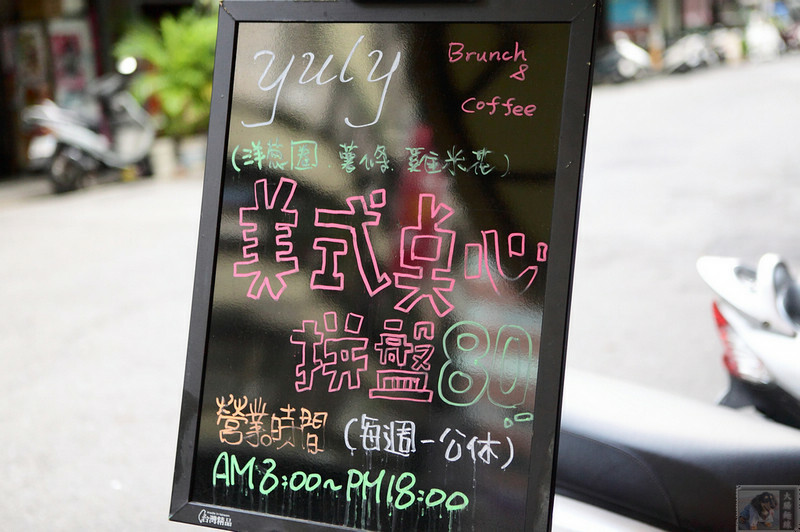 yuly
Brunch
&
Coffee
(洋蔥圈.薯條.雞米花)
美式点心
拼盤80
營業時間(每週一公休)
AM8:00~PM18:00
台灣精品